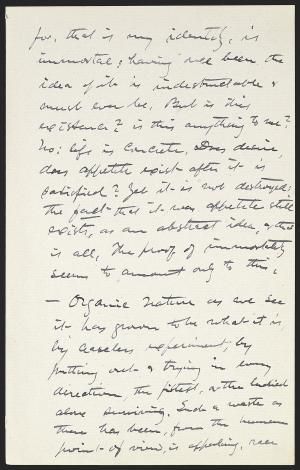 for, that is my identity, is
immortal; having once been, the
idea of it is indestructable &
must ever be. But is this
existence? is this anything to me?
No: life is concrete. Does desire,
does appetite exist after it is
satisfied? Yet it is not destroyed:
the fact that it was appetite still
exists, as an abstract idea, & that
is all. The proof of immortality
seems to amount only to this.
— Organic nature as we see
it has grown to be what it is,
by ceaseless experiment, by
putting out & trying in every
direction, the fittest, or the luckiest
alone surviving. Such a waste as
there has been, from the human
point of view, is appalling, over